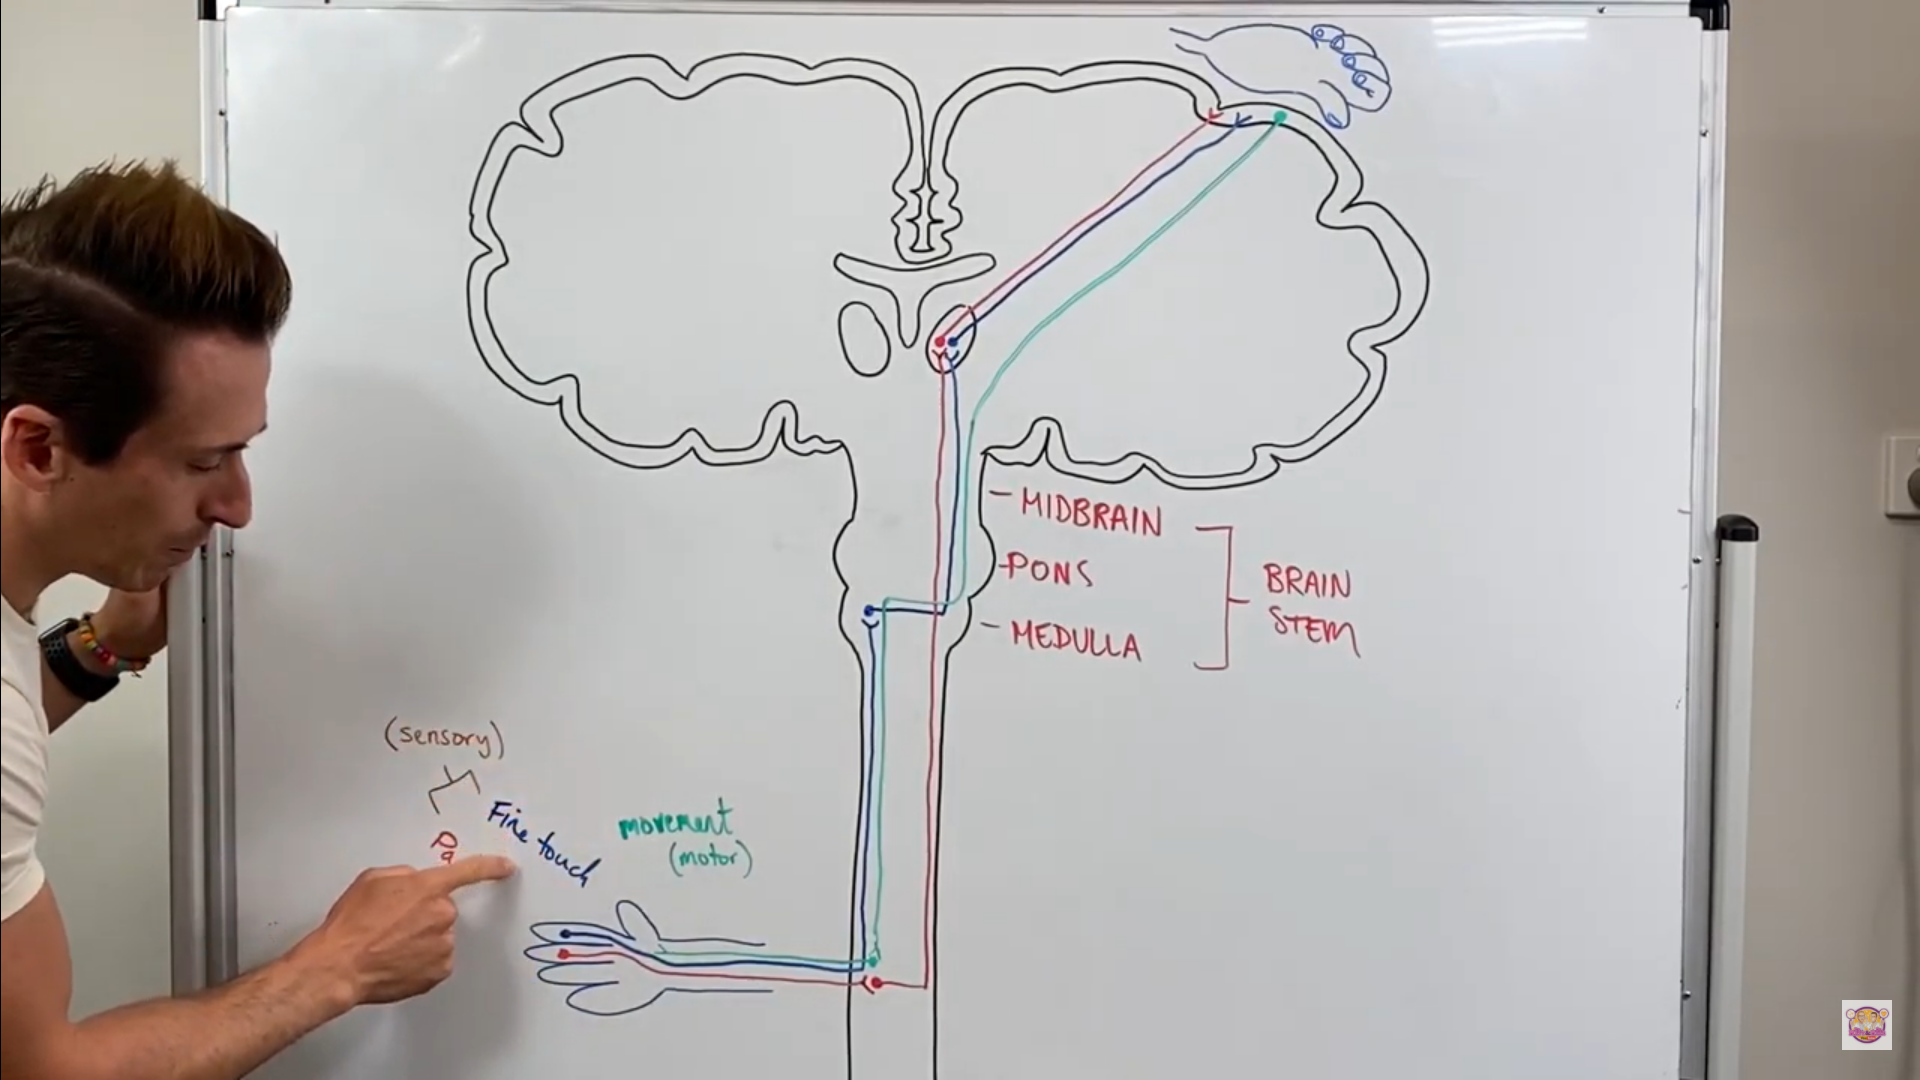 - MIDBRAIN
- PONS
- MEDULLA
BRAIN
STEM
(sensory)
Fine touch
movement
(motor)